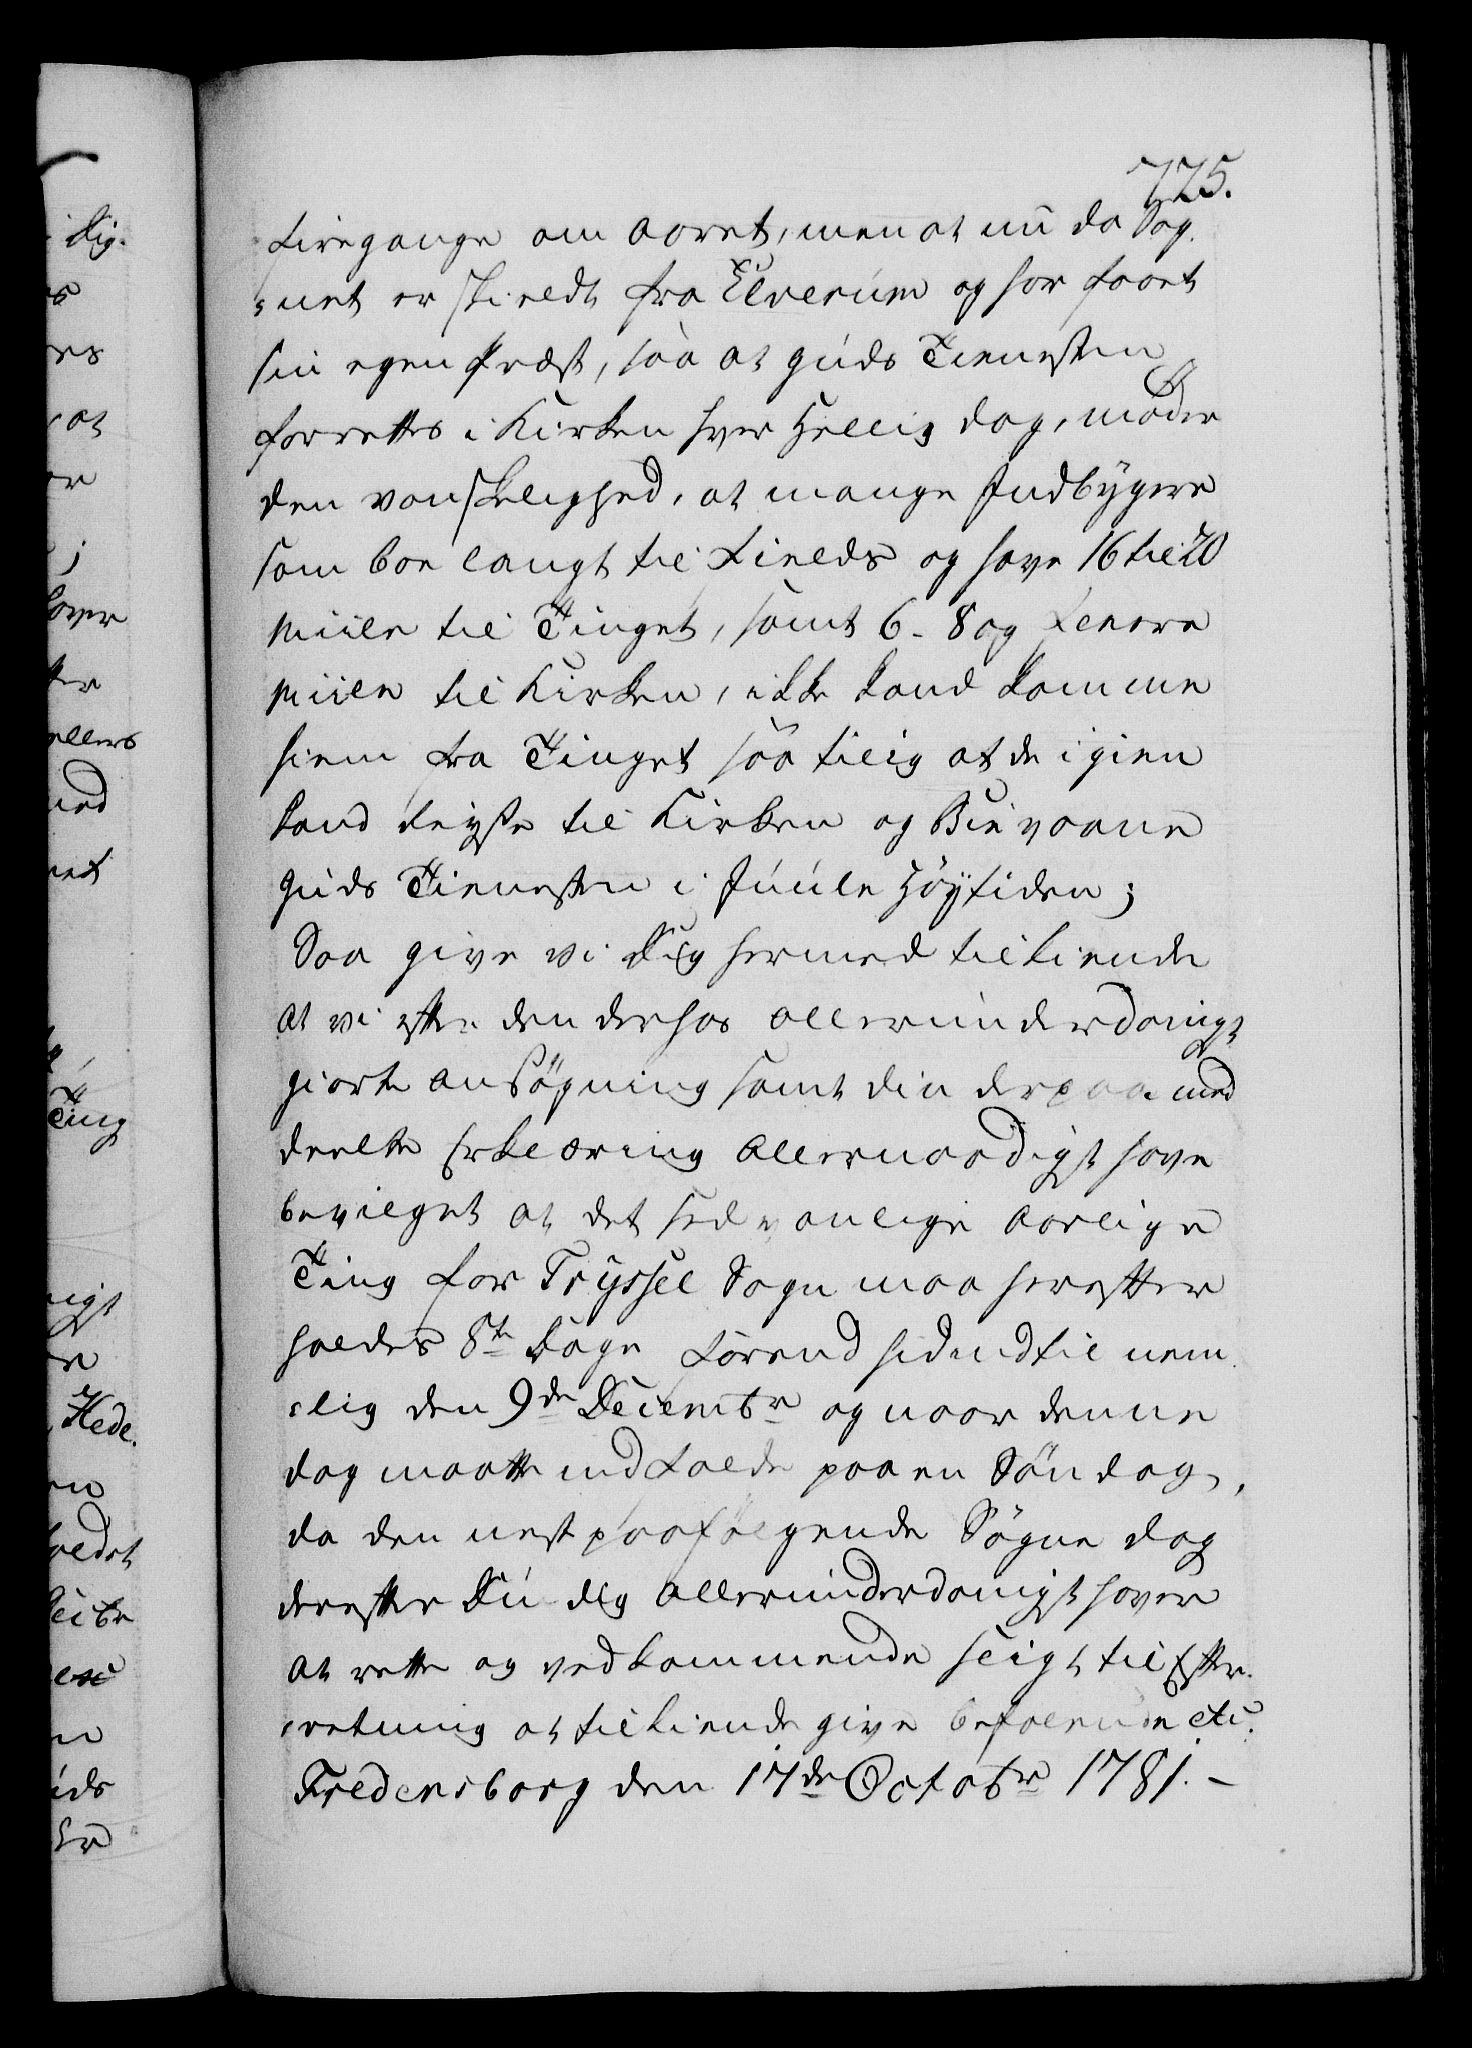 775.
firegange om aaret, men at nu da Sog¬
¬net er skieldt fra Elverum og har faaet
sin egen Præst, saa at Guds Tienesten
forrettes i Kirken hver Hellig dag, møder
den vanskelighed, at mange Indbygere
som boe langt til Fields og have 16 til 20
Miile til Tinget, samt 6 - 8 og fleere
Miile til Kirken, ikke kand komme
hiem fra Tinget saa tilig at de igien
kand reyse til Kirken og Bievaane
Guds Tienesten i Juule Höytiden;
Saa give vi Dig hermed tilkiende
at vi efter den derhos allerunderdanigst
giorte ansøgning samt din derpaa med
deelte Erklæring allernaadigst have
bevilget at det sedvanlige aarlige
Ting for Tryssel Sogn maa herefter
holdes 8te Dage förend hidindtil nem¬
¬lig den 9de Decembr og naar denne
dag maatte indfalde paa en Søndag,
da den nest paafølgende Søgne dag
derefter Du dig allerunderdanigst haver
at rette og vedkommende sligt til Efter¬
¬retning at tilkiende give befalende etc.
Fredensborg den 17de Octobr 1781. –
Dig.
at
j
haver
ellers
Ting
Hede.
Guds